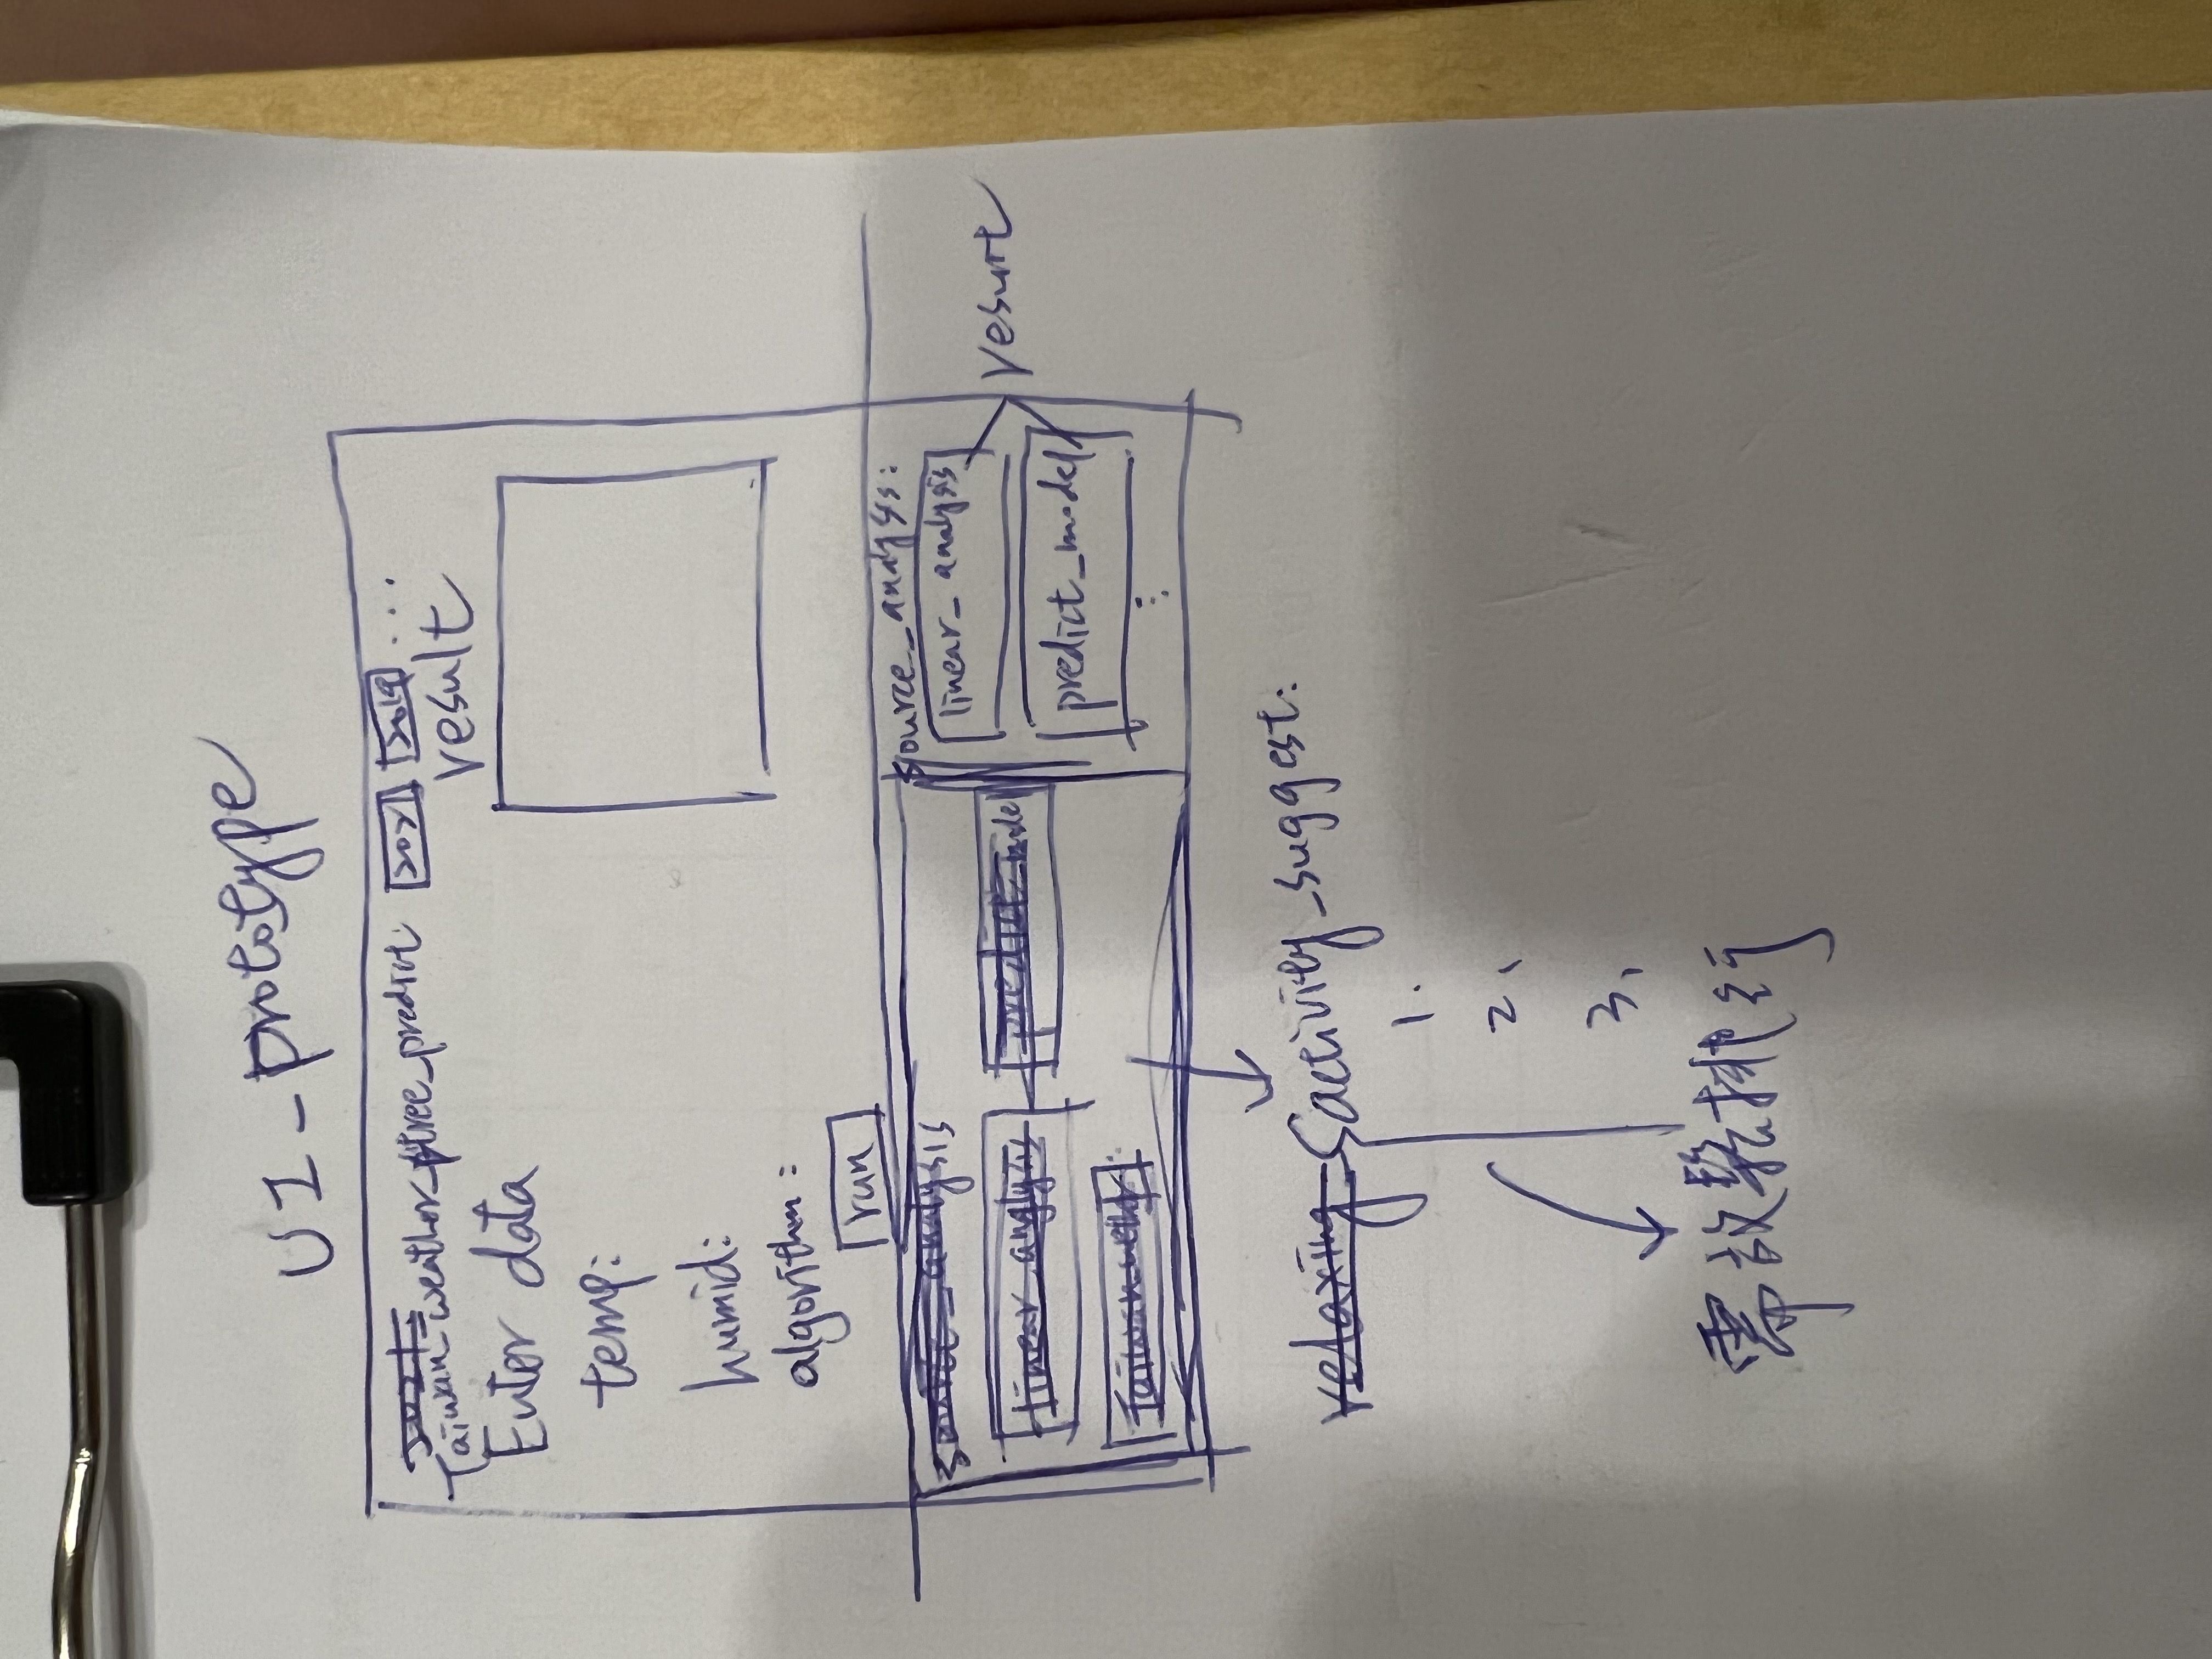 UI_prototype
2021
Taiwan_weather_tree_predict. 2021 2019 ...
result
Enter data
temp:
humid:
algorithm:
run
source_analysis
linear_analysis predict_model
Taiwan_wether:
source_analysis:
linear_analysis
predict_model
result
relaxing_activity_suggest:
1.
2、
3、
需放鬆排行